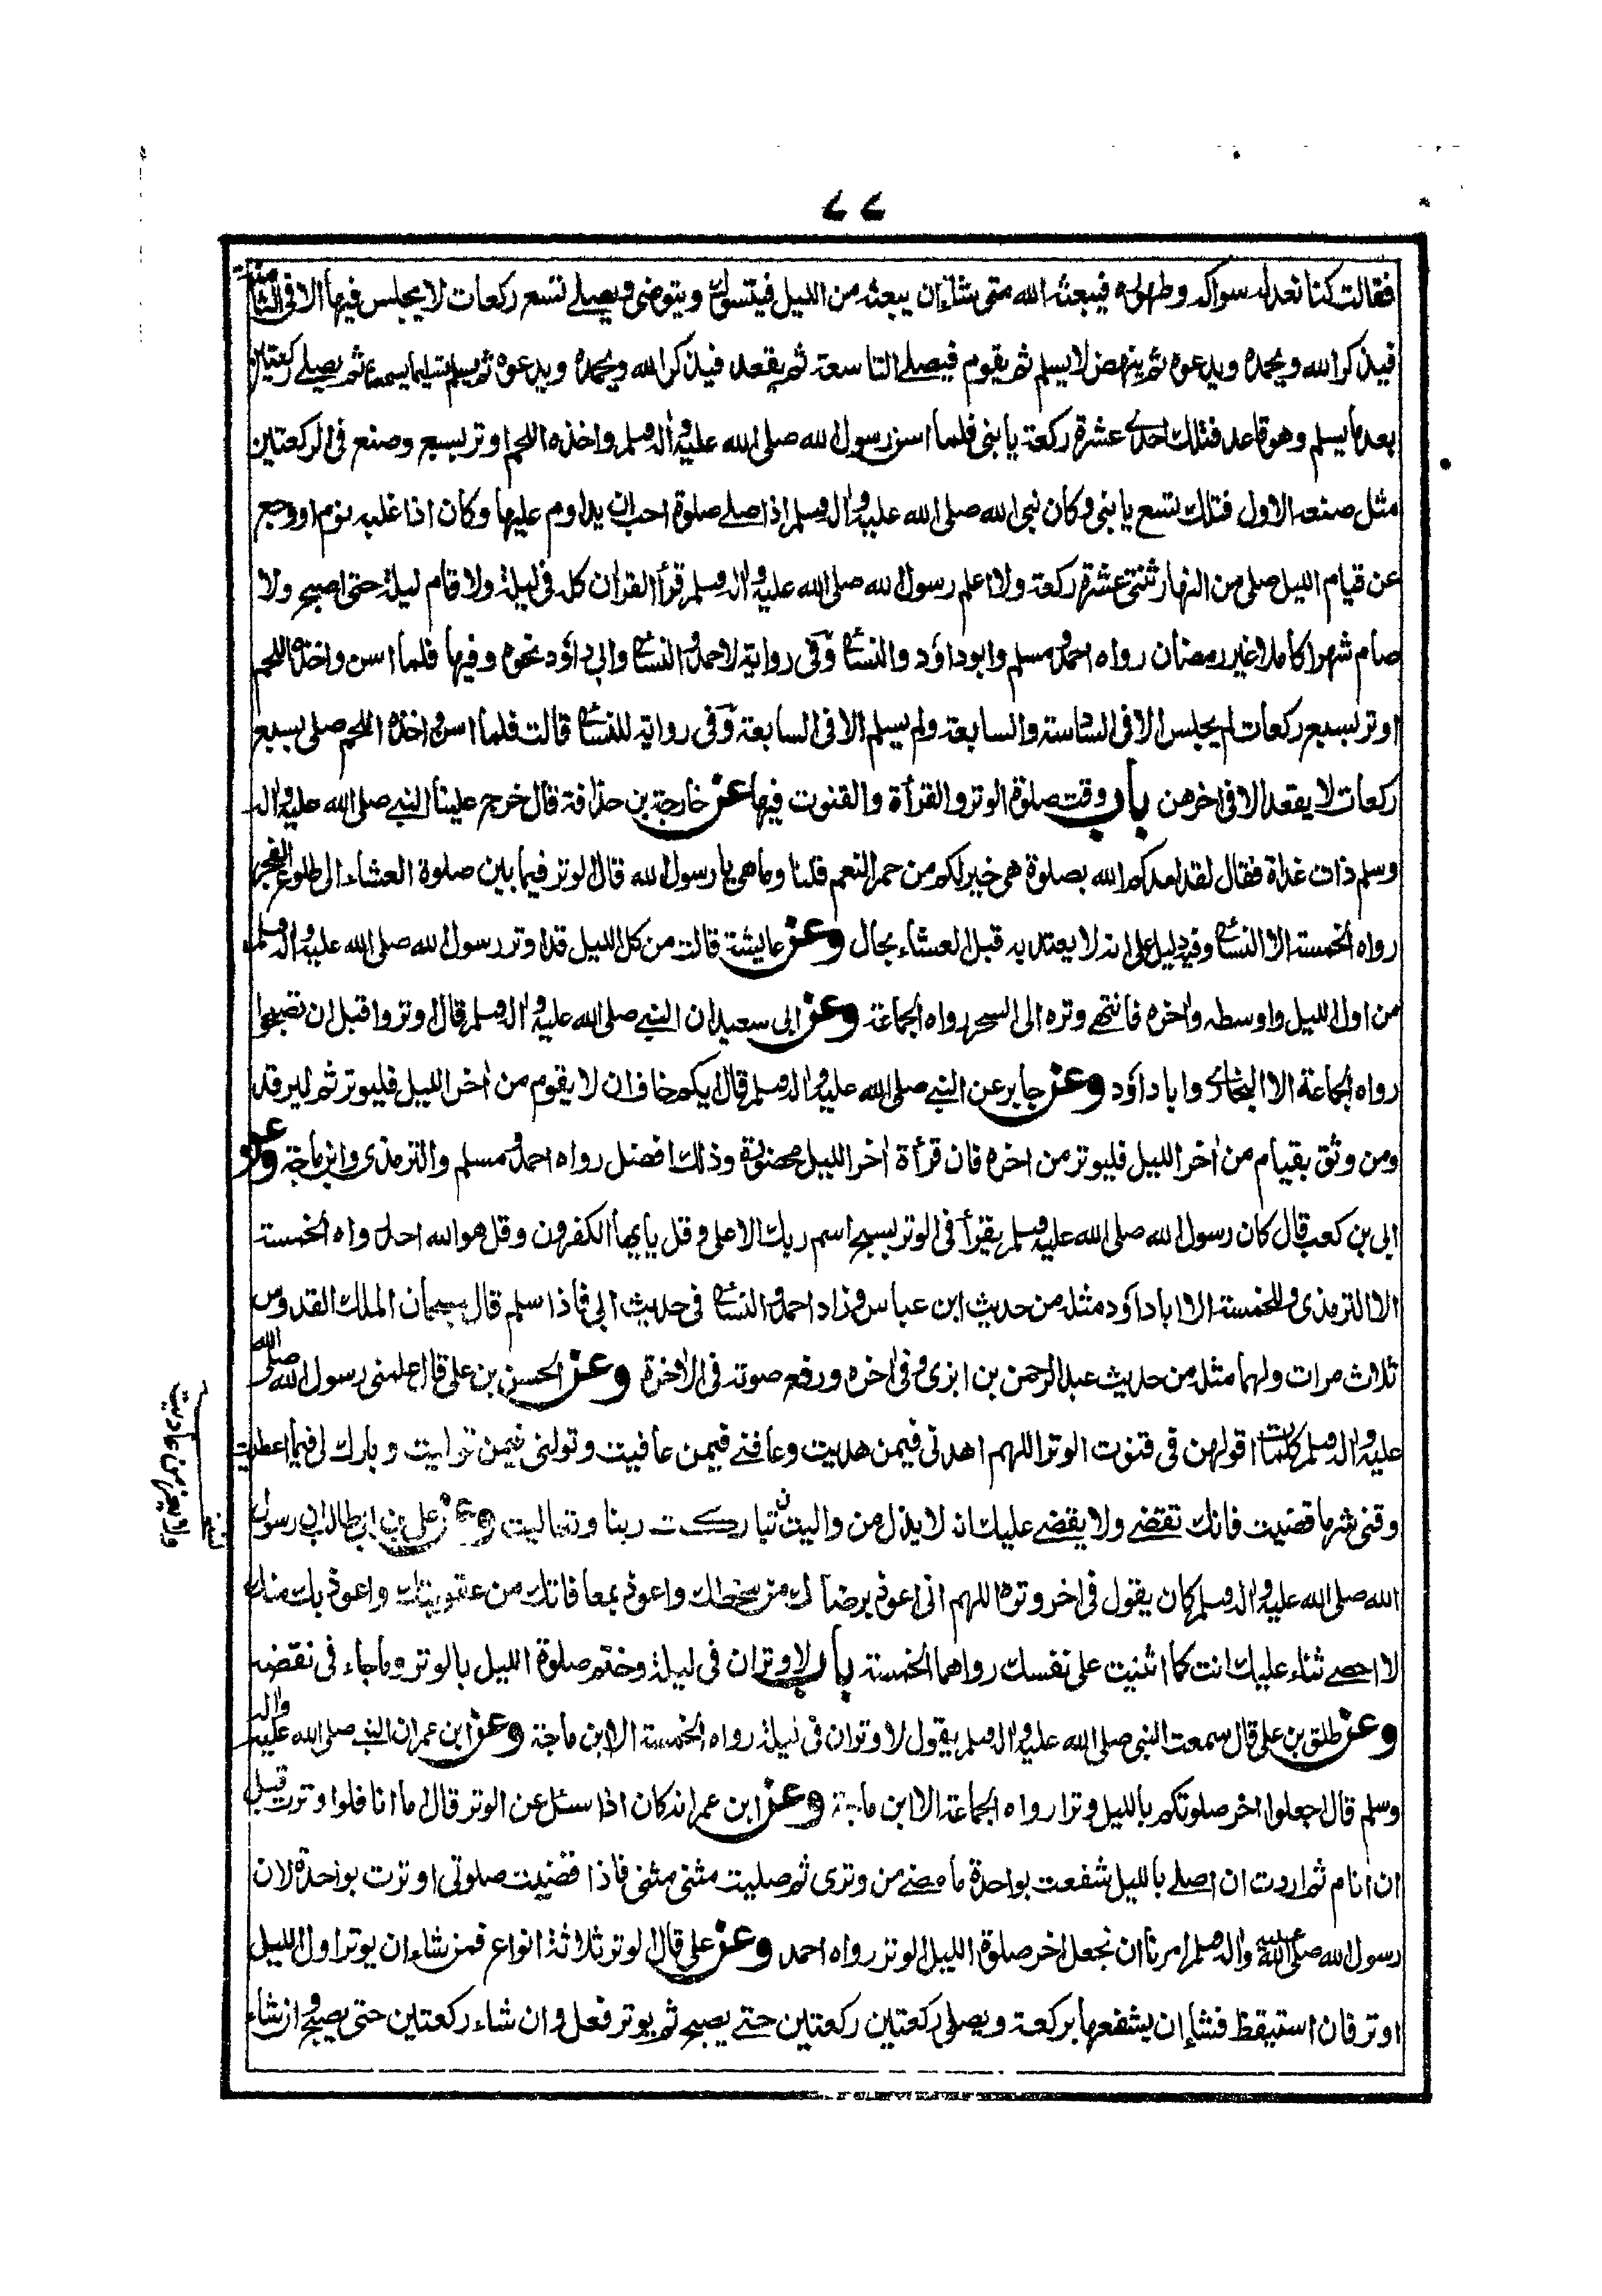 ٧٧
فقالت كنا نعد له سواكه وطهوره فيبعثه الله متى شاء ان يبعثه من الليل فيتسوك ويتوضى ويصلے تسع ركعات لا يجلس فيها الا فى الثامنة
فيذكر الله ويحمده ويدعوه ثم ينهض لا يسلم ثم يقوم فيصلے التاسعة ثم يقعد فيذكر الله ويحمده ويدعوه ثم يسلم تسليما يسمعنا ثم يصلے ركعتين
بعد ما يسلم وهو قاعد فتلك احدے عشرة ركعة يا بنى فلما اسن رسول الله صلى الله عليه واله وسلم واخذه اللحم اوتر بسبع وصنع فى الركعتين
مثل صنعه الاول فتلك تسع يا بنى وكان نبى الله صلى الله عليه واله وسلم اذا صلے صلوة احب ان يداوم عليها وكان اذا غلبه نوم او وجع
عن قيام الليل صلى من النهار ثنتى عشرة ركعة ولا اعلم رسول الله صلى الله عليه واله وسلم قرأ القران كله فى ليلة ولا قام ليلة حتى اصبح ولا
صام شهرا كاملا غير رمضان رواه احمد ومسلم وابو داؤد والنسائ وَفى رواية لاحمد والنسائ وابى داؤد نحوه وفيها فلما اسن واخذه اللحم
اوتر بسبع ركعات لم يجلس الا فى السادسة والسابعة ولم يسلم الا فى السابعة وَفى رواية للنسائ قالت فلما اسن واخذه اللحم صلى بسبع
ركعات لا يقعد الا فى اخرهن باب وقت صلوة الوتر والقرأة والقنوت فيها عن خارجة بن حذافة قال خرج علينا النبے صلى الله عليه واله
وسلم ذات غداة فقال لقد امدكم الله بصلوة هى خير لكم من حمر النعم قلنا وما هى يا رسول الله قال الوتر فيما بين صلوة العشاء الى طلوع الفجر
رواه الخمسة الا النسائ وفيه دليل على انه لا يعتد به قبل العشاء بحال وعن عايشة قالت من كل الليل قد اوتر رسول الله صلى الله عليه واله وسلم
من اول الليل واوسطه واخره فانتهے وتره الى السحر رواه الجماعة وعن ابى سعيد ان النبے صلى الله عليه واله وسلم قال اوتروا قبل ان تصبحوا
رواه الجماعة الا البخارے وابا داؤد وعن جابر عن النبے صلى الله عليه واله وسلم قال ايكم خاف ان لا يقوم من اخر الليل فليوتر ثم ليرقد
ومن وثق بقيام من اخر الليل فليوتر من اخره فان قرأة اخر الليل محضورة وذلك افضل رواه احمد ومسلم والترمذى وابن ماجة وعن
ابى بن كعب قال كان رسول الله صلى الله عليه وسلم يقرأ فى الوتر بسبح اسم ربك الاعلى وقل يايها الكفرون وقل هو الله احد رواه الخمسة
الا الترمذى وللخمسة الا ابا داؤد مثله من حديث ابن عباس وزاد احمد والنسائ فى حديث ابى فاذا سلم قال سبحان الملك القدوس
ثلاث مرات ولهما مثله من حديث عبد الرحمن بن ابزى وفى اخره ورفع صوته فى الاخرة وعن الحسن بن على قال علمنى رسول الله صلى الله
عليه واله وسلم كلمات اقولهن فى قنوت الوتر اللهم اهدنى فيمن هديت وعافنے فيمن عافيت وتولنى فيمن توليت وبارك لى فيما اعطيت
وقنى شر ما قضيت فانك تقضے ولا يقضے عليك انه لا يذل من واليت تباركت ربنا وتعاليت وعن على بن ابى طالب ان رسول
الله صلى الله عليه واله وسلم كان يقول فى اخر وتره اللهم انى اعوذ برضاك من سخطك واعوذ بمعافاتك من عقوبتك واعوذ بك منك
لا احصے ثناء عليك انت كما اثنيت على نفسك رواهما الخمسة باب لا وتران فى ليلة وختم صلوة الليل بالوتر وما جاء فى نقضه
وعن طلق بن على قال سمعت النبى صلى الله عليه واله وسلم يقول لا وتران فى ليلة رواه الخمسة الا ابن ماجة وعن ابن عمر ان النبے صلى الله عليه واله
وسلم قال اجعلوا اخر صلوتكم بالليل وترا رواه الجماعة الا ابن ماجة وعن ابن عمر انه كان اذا سئل عن الوتر قال اما انا فلو اوترت قبل
ان انام ثم اردت ان اصلے بالليل شفعت بواحدة ما مضے من وترى ثم صليت مثنى مثنى فاذا قضيت صلوتى اوترت بواحدة لان
رسول الله صلى الله عليه واله وسلم امرنا ان نجعل اخر صلوة الليل الوتر رواه احمد وعن على قال الوتر ثلاثة انواع فمن شاء ان يوتر اول الليل
اوتر فان استيقظ فشاء ان يشفعها بركعة ويصلى ركعتين ركعتين حتے يصبح ثم يوتر فعل وان شاء ركعتين حتى يصبح وان شاء
ولا يعز من عاديت